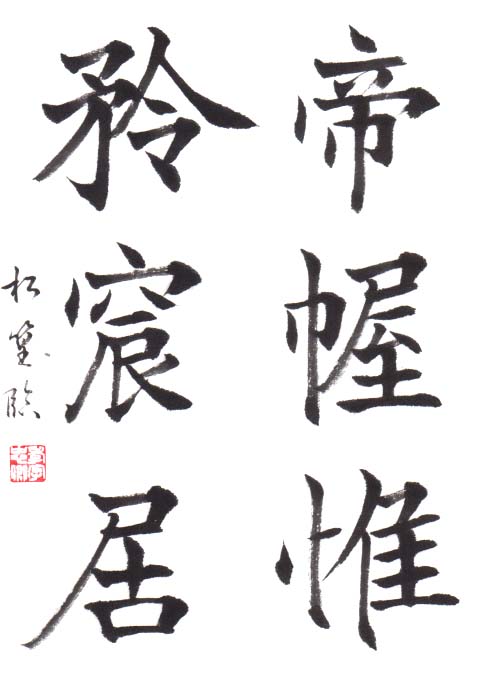 帝幄惟
矜宸居
松臨